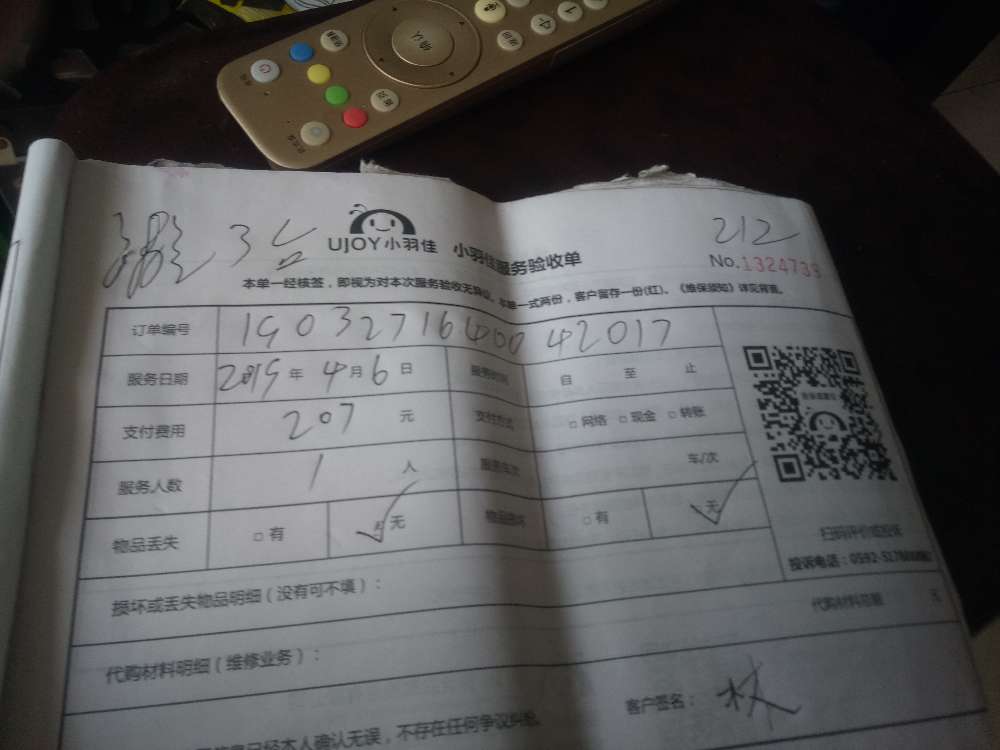 3台
212
UJOY小羽佳 小羽佳服务验收单
No.1324733
本单一经核签，即视为对本次服务验收无异议。本单一式两份，客户留存一份(红)。《维保须知》详见背面。
订单编号 19032716400042017
服务日期 2019年4月6日 服务时间 自 至 止
支付费用 207元 支付方式 □网络 □现金 □转账
服务人数 1人 服务车次 车/次
物品丢失 □有 ✓无 物品损坏 □有 ✓无
扫码评价或投诉
投诉电话：0592-
损坏或丢失物品明细（没有可不填）：
代购材料总额 元
代购材料明细（维修业务）：
已经本人确认无误，不存在任何争议纠纷。
客户签名： 林
确认
返回
首页